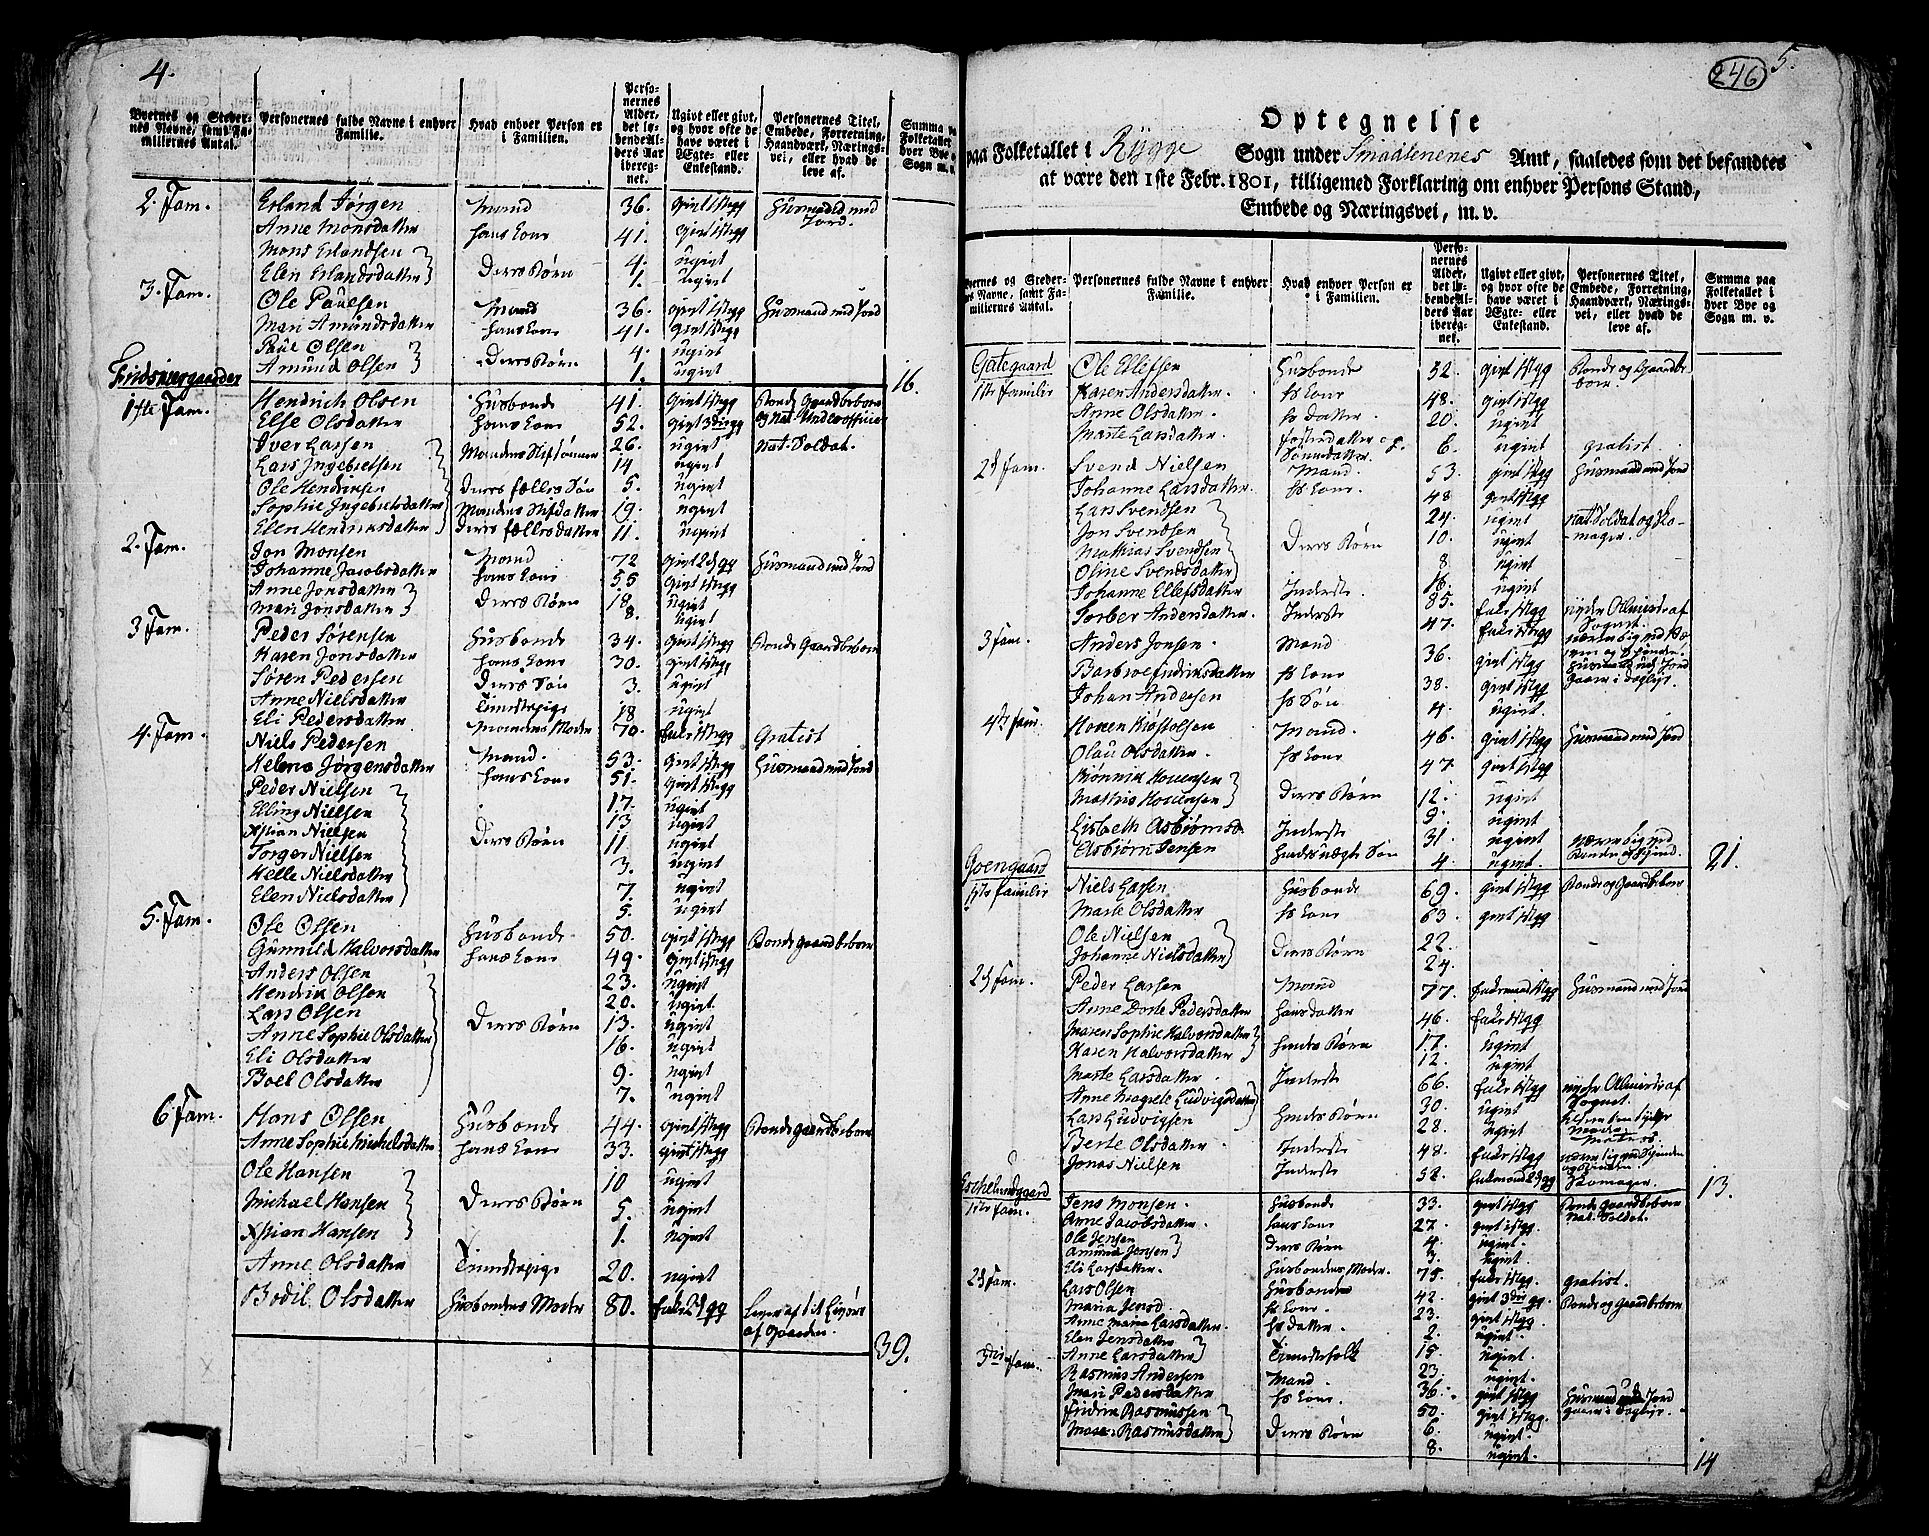 4.
Byernes og Stedernes Navne, samt Familliernes Antal.
Personernes fulde Navne i enhver Familie.
Hvad enhver Person er i Familien.
Personernes Alder, det løbende Alders Aar iberegnet.
Ugivt eller givt, og hvor ofte de have været i Ægte- eller Enkestand.
Personernes Titel, Embede, Forretning, Haandværk, Næringsvei, eller hvad de leve af.
Summa paa Folketallet hver Bye o Sogn m. v.
2. Fam. Erland Jørgen Mand 36. givt 1ste gg Huusmand med Jord.
Anne Monsdatter hans Kone 41. givt 1ste gg
Mons Erlandsen } Deres Børn 4. ugivt
Elen Erlandsdatter } 1. ugivt
3. Fam. Ole Paulsen Mand 36. givt 1ste gg Huusmand med Jord
Mari Amundsdatter hans Kone 41. givt 1ste gg
Paul Olsen } Deres Børn 4. ugivt
Amund Olsen } 1. ugivt 16.
1ste Fam. Hendrich Olsen Husbonde 41. givt 1ste gg Bonde Gaardbeboer og Nat. Underofficier
Else Olsdatter hans Kone 52. givt 3die gg
Iver Larsen Mandens Stifsønner 26. ugivt Nat. Soldat.
Lars Ingebretsen 14 ugivt
Ole Hendrichsen Deres fælles Søn 5. ugivt
Sophie Ingebretsdatter Mandens Stifdatter 19. ugivt
Elen Hendrichsdatter Deres fælles datter 11. ugivt
2. Fam. Jon Monsen Mand 72 givt 2d gg Huusmand med Jord
Johanne Jacobsdatter hans Kone 55 givt 1ste gg
Anne Jonsdatter } Deres Børn 18. ugivt
Mari Jonsdatter } 8. ugivt
3 Fam. Peder Sørensen Husbonde 34. givt 1ste gg Bonde Gaardbeboer
Karen Jonsdatter hans Kone 30. givt 1ste gg
Søren Pedersen Deres Søn 3. ugivt
Anne Nielsdatter Tienestepige 18 ugivt
Eli Pedersdatter Mandens Moder 70. Enke 1ste gg Gratist
4. Fam. Niels Pedersen Mand 53. givt 1ste gg Huusmand med Jord
Helena Jørgensdatter hans Kone 51. givt 1ste gg
Peder Nielsen } 17. ugivt
Elling Nielsen 13 ugivt
Xstian Nielsen Deres Børn 11. ugivt
Torger Nielsen 3. ugivt
Helle Nielsdatter 7. ugivt
Elen Nielsdatter 5. ugivt
5. Fam. Ole Olsen Husbonde 50. givt 1ste gg Bonde Gaardbeboer
Gunnild Halvorsdatter hans Kone 49. givt 1ste gg
Anders Olsen 23. ugivt
Hendrik Olsen 20. ugivt
Lars Olsen Deres Børn 13. ugivt
Anne Sophie Olsdatter 16. ugivt
Eli Olsdatter 9. ugivt
Boel Olsdatter 7. ugivt
6 Fam. Hans Olsen Husbonde 44. givt 1ste gg Bonde Gaardbeboer
Anne Sophie Michelsdatter hans Kone 33. givt 1ste gg
Ole Hansen 10 ugivt
Michael Hansen } Deres Børn 5. ugivt
Xstian Hansen 1. ugivt
Anne Olsdatter Tienestepige 20. ugivt
Bodil Olsdatter Husbondens Moder 80. Enke 2d gg af Gaarden.
39.
246 5.
Optegnelse
paa Folketallet i Rygge Sogn under Smaalenenes Amt, saaledes som det befandtes
at være den 1ste Febr. 1801, tilligemed Forklaring om enhver Persons Stand,
Embede og Næringsvei, m. v.
yernes og Steder- es Navne, samt Familliernes Antal.
Personernes fulde Navne i enhver Familie.
Hvad enhver Person er i Familien.
Personernes Alder, det løbende Alders Aar iberegnet.
Ugivt eller givt, og hvor ofte de have været i Ægte- eller Enkestand.
Personernes Titel, Embede, Forretning, Haandværk, Næringsvei, eller hvad de leve af.
Summa paa Folketallet i hver Bye og Sogn m. v.
Gategaard
1ste Familie Ole Ellefsen Husbonde 52. givt 1ste gg Bonde og Gaardbeboer
Karen Andersdatter. hs Kone 48. givt 1ste gg
Anne Olsdatter. hs datter. 20. ugivt
Marte Larsdatter. Sønnedatter. 6. ugivt gratist
2d Fam. Svend Nielsen Mand. 53. givt 1ste gg Huusmand med Jord
Johanne Larsdatter. hs Kone. 48 givt 1ste gg
Lars Svendsen 24. ugivt Nat. Soldat og Skomager.
Jon Svendsen Deres Børn 10. ugivt
Mathias Svendsen 8 ugivt
Oline Svendsdatter 16. ugivt
Johanne Ellefsdatter Inderste. 85. Enke 1ste gg nyder Almisse af Sognet.
Torber Andersdatter. Inderste 47. Enke 1ste gg
3 Fam. Anders Jonsen Mand 36. givt 1ste gg Huusmand med Jord
Barbroe Fredriksdatter hs Kone 38. givt 1ste gg
Johan Andersen hs Søn 4. ugivt
4de Fam. Hovven Kiøstolsen Mand. 46. givt 1ste gg Huusmand med Jord
Olau Olsdatter. hs Kone 47. givt 1ste gg
Hovvensen } Deres Børn 12. ugivt
Mathis Hovvensen } 9. ugivt
Lisbeth Asbiørnsd. Inderste 31. ugivt
Asbiørn Jensen hendes uægte Søn 4. ugivt 21.
Goengaard
1ste Familie Niels Larsen Husbonde 69. givt 1ste gg Bonde og Gaardbeboer
Marte Olsdatter hs Kone 63. givt 1ste gg
Ole Nielsen } Deres Børn 22.
Johanne Nielsdatter } 24.
2d Fam. Peder Larsen Mand 77. Enkemand 1ste gg Huusmand med Jord
Anne Dorte Pedersdatter hans datter 46. Enke 1ste gg
Maren Sophie Halvorsdatter } hendes Børn 17. ugivt
Karen Halvorsdatter } 12. ugivt
Marte Larsdatter Inderste 66. Enke 1ste gg nyder Almisse af Sognet.
Anne Magrete Ludvigsdatter } hendes Børn 30. ugivt
Lars Ludvigsen 28. ugivt Matros
Berte Olsdatter. Inderste 48. Enke 1ste gg
Jonas Nielsen Inderste 52. Enkemand 2d gg Skomager. 13.
1ste Fam. Jens Monsen. Husbonde 33. givt 1ste gg Bonde Gaardbeboer Nat. Soldat.
Anne Jacobsdatter. hans Kone 27. givt 1ste gg
Ole Jensen } Deres Børn 4. ugivt.
Amund Jensen } 3. ugivt.
Eli Larsdatter. Husbondens Moder. 75. Enke 1ste gg. gratist.
2d Fam. Lars Olsen Husbonde 42. givt 3die gg. Bonde og Gaardbeboer
Maria Jensd. hs Kone. 23. givt 1ste gg.
Anne Maria Larsdatter. hs datter. 2. ugivt.
Elen Jensdatter } Tienestefolk 15. ugivt.
Anne Larsdatter } 23. ugivt.
3die Fam. Rasmus Andersen Mand. 36. givt 1ste gg Huusmand med Jord
Mari Pedersdatter hs Kone. 50. givt 1ste gg.
Fredrik Rasmussen } Deres Børn 6. ugivt.
Rasmusdatter } 8. ugivt.
14